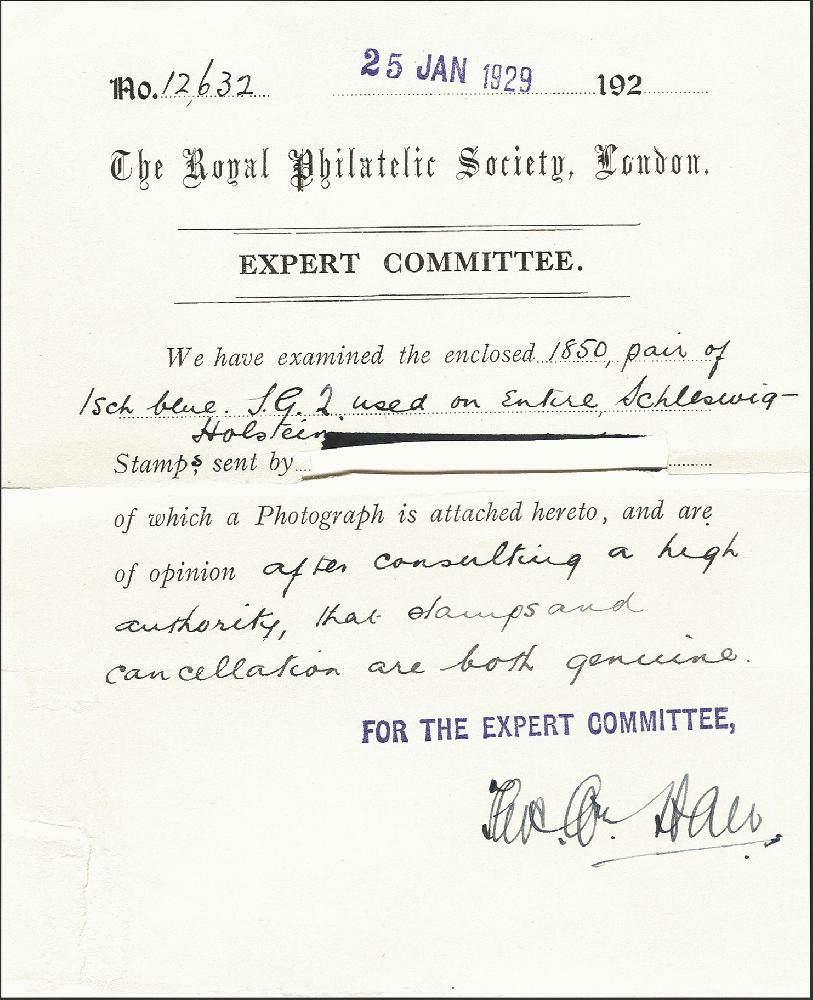 No. 12,632 25 JAN 1929 192
The Royal Philatelic Society, London.
EXPERT COMMITTEE.
We have examined the enclosed 1850, pair of
1sch blue. S.G. 2 used on Entire, Schleswig-
Holstein
Stamps sent by
of which a Photograph is attached hereto, and are
of opinion after consulting a high
authority, that stamps and
cancellation are both genuine.
FOR THE EXPERT COMMITTEE,
Thos. Wm. Hall.